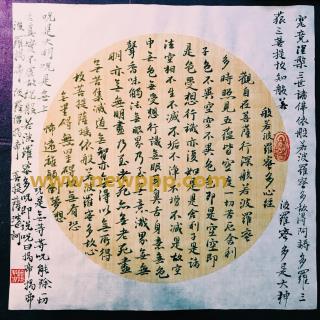 般若波羅密多心經
觀自在菩薩行深般若波羅密
多時照見五蘊皆空度一切苦厄舍利
子色不異空空不異色色即是空空即
是色受想行識亦復如是舍利子是諸
法空相不生不滅不垢不淨不增不減是故空
中無色無受想行識無眼耳鼻舌身意無色
聲香味觸法無眼界乃至無意識界無無
明亦無無明盡乃至無老死亦無老死盡
無苦集滅道無智亦無得以無所得
故菩提薩埵依般若波羅密多故心
無罣礙無罣礙故無有恐
怖遠離
究竟涅槃三世諸佛依般若波羅密多故得阿耨多羅三
藐三菩提故知般若
波羅密多是大神
咒是大明咒是無上咒
是無等等咒能除一切
苦真實不虛故說般若波羅密多咒即說咒曰揭帝揭帝
www.newppp.com